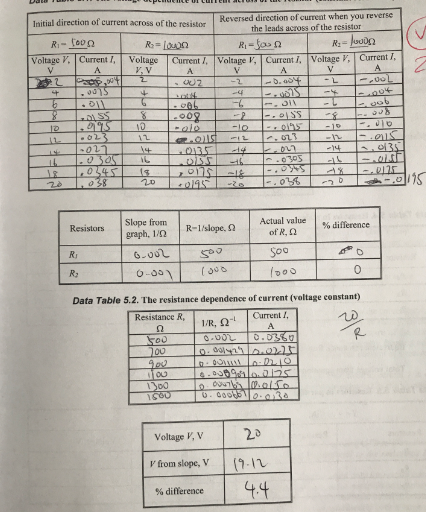 Initial direction of current across of the resistor Reversed direction of current when you reverse the leads across of the resistor
R₁ = 500Ω R₂ = 1000Ω R₁ = 500Ω R₂ = 1000Ω
Voltage V, V Current I, A Voltage V, V Current I, A Voltage V, V Current I, A Voltage V, V Current I, A
2 .004 2 .002 -2 -0.004 -2 -.002
4 .0075 4 .004 -4 -.0075 -4 -.004
6 .011 6 .006 -6 -.011 -6 -.006
8 .0155 8 .008 -8 -.0155 -8 -.008
10 .0195 10 .010 -10 -.0195 -10 -.010
12 .023 12 .0115 -12 -.023 -12 -.0115
14 .027 14 .0135 -14 -.027 -14 -.0135
16 .0305 16 .0155 -16 -.0305 -16 -.0155
18 .0345 18 .0175 -18 -.0345 -18 -.0175
20 .038 20 .0195 -20 -.038 -20 -.0195
Resistors Slope from graph, 1/Ω R=1/slope, Ω Actual value of R, Ω % difference
R₁ 0.002 500 500 0
R₂ 0.001 1000 1000 0
Data Table 5.2. The resistance dependence of current (voltage constant)
Resistance R, Ω 1/R, Ω⁻¹ Current I, A
500 0.002 0.0380
700 0.001429 0.0275
900 0.001111 0.0210
1100 0.000909 0.0175
1300 0.000769 0.0150
1500 0.000667 0.0130
20/R
Voltage V, V 20
V from slope, V 19.12
% difference 4.4